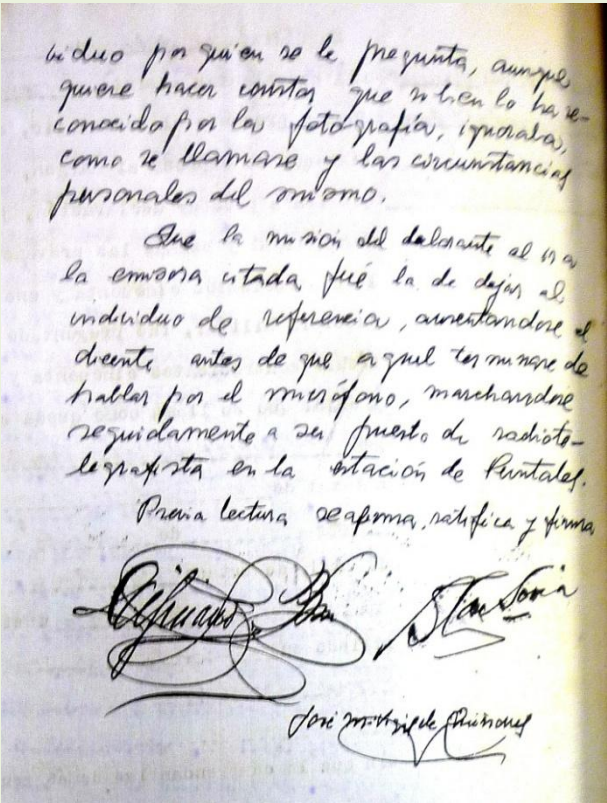 viduo por quien se le pregunta, aunque
quiere hacer constar que si bien lo ha re-
conocido por la fotografía, ignoraba,
como se llamase y las circunstancias
personales del mismo.
Que la mision del declarante al ir a
la emisora citada, fué la de dejar al
individuo de referencia, ausentandose el
dicente antes de que aquel terminase de
hablar por el micrófono, marchandose
seguidamente a su puesto de radiote-
legrafista en la estación de Puntales.
Previa lectura se afirma, ratifica y firma
José M. Vizcaino de Quiñones